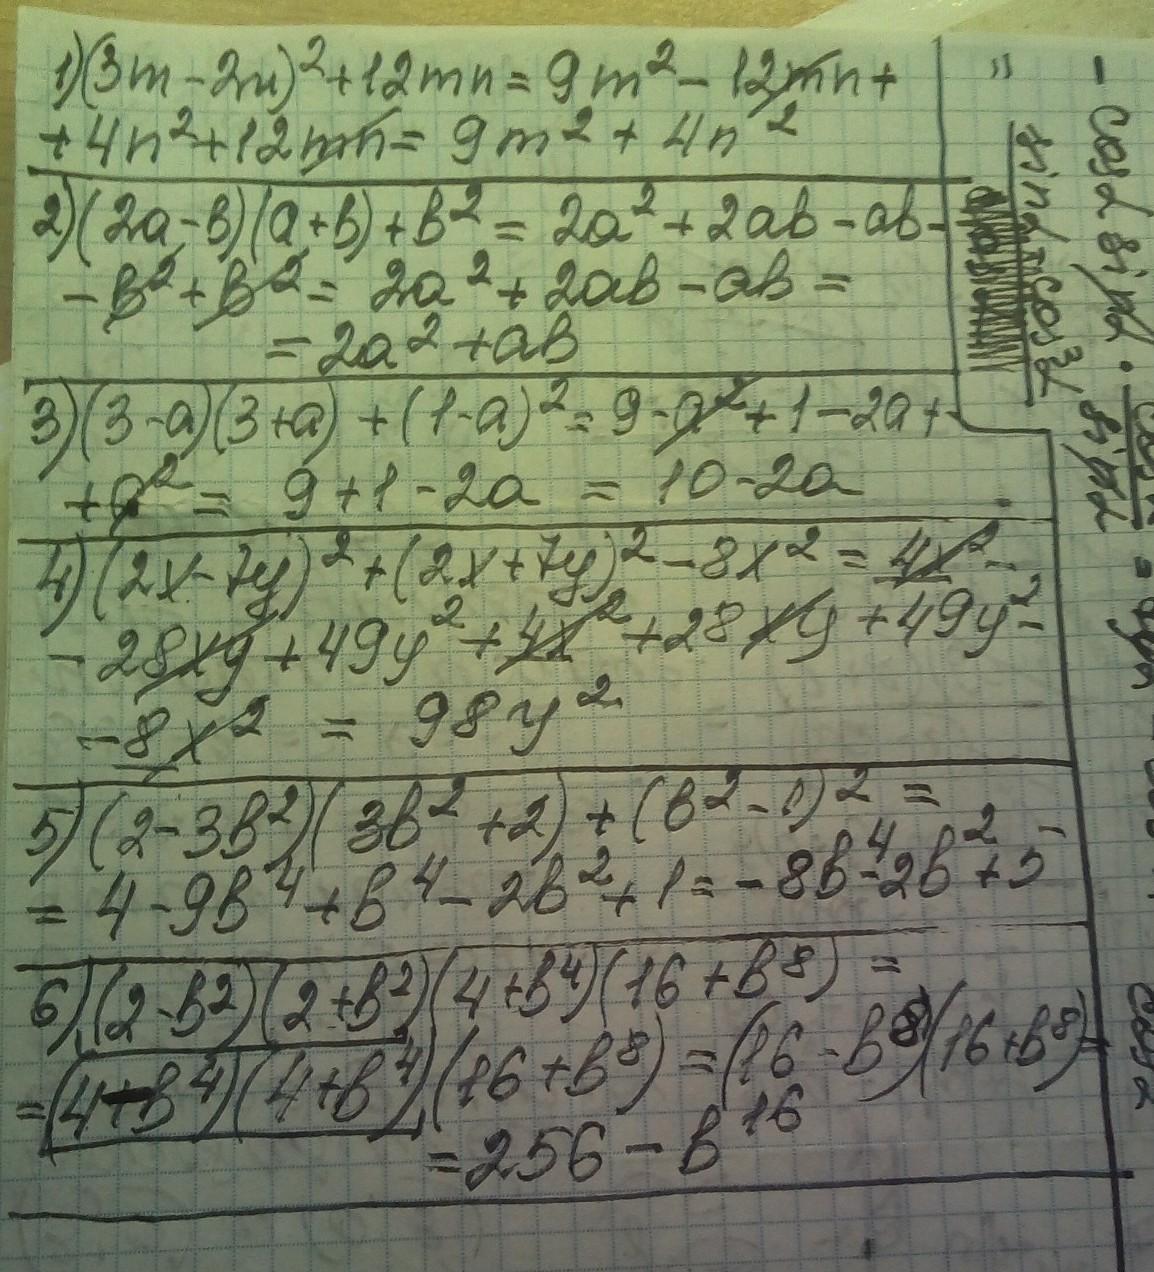 1) (3m - 2n)² + 12mn = 9m² - 12mn +
+ 4n² + 12mn = 9m² + 4n²
2) (2a - b)(a + b) + b² = 2a² + 2ab - ab -
- b² + b² = 2a² + 2ab - ab =
= 2a² + ab
3) (3 - a)(3 + a) + (1 - a)² = 9 - a² + 1 - 2a +
+ a² = 9 + 1 - 2a = 10 - 2a
4) (2x - 7y)² + (2x + 7y)² - 8x² = 4x² -
- 28xy + 49y² + 4x² + 28xy + 49y² -
- 8x² = 98y²
5) (2 - 3b²)(3b² + 2) + (b² - 1)² =
= 4 - 9b⁴ + b⁴ - 2b² + 1 = - 8b⁴ - 2b² + 5
6) (2 - b²)(2 + b²)(4 + b⁴)(16 + b⁸) =
= (4 - b⁴)(4 + b⁴)(16 + b⁸) = (16 - b⁸)(16 + b⁸) =
= 256 - b¹⁶